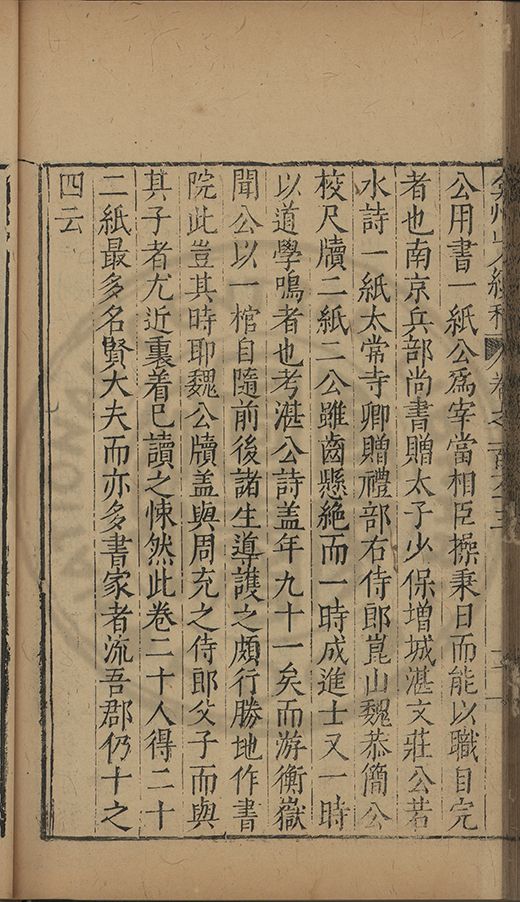 弇州山人續稿 卷之一百六十三
公用書一紙公爲宰當相臣操秉日而能以職自完
者也南京兵部尚書贈太子少保增城湛文莊公若
水詩一紙太常寺卿贈禮部右侍郎崑山魏恭簡公
校尺牘二紙二公雖齒懸絶而一時成進士又一時
以道學鳴者也考湛公詩盖年九十一矣而游衡嶽
聞公以一棺自隨前後諸生導護之頗行勝地作書
院此豈其時耶魏公牘盖與周充之侍郎父子而與
其子者尤近裏着已讀之悚然此卷二十人得二十
二紙最多名賢大夫而亦多書家者流吾郡仍十之
四云